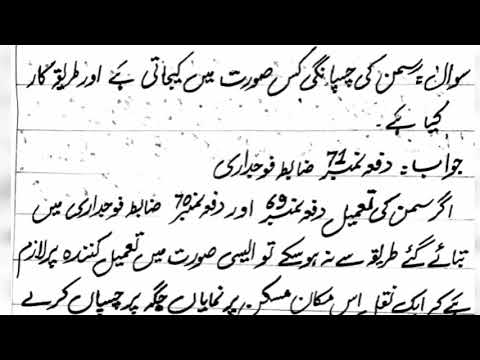 سوال:۔ سمن کی چسپانگی کس صورت میں کیجاتی ہے اور طریقہ کار
کیا ہے۔
جواب:۔ دفعہ نمبر 71 ضابطہ فوجداری
اگر سمن کی تعمیل دفعہ نمبر 69 اور دفعہ نمبر 70 ضابطہ فوجداری میں
بتائے گئے طریقے سے نہ ہوسکے تو ایسی صورت میں تعمیل کنندہ پر لازم
ہے کہ ایک نقل اس مکان مسکن پر نمایاں جگہ پر چسپاں کرے